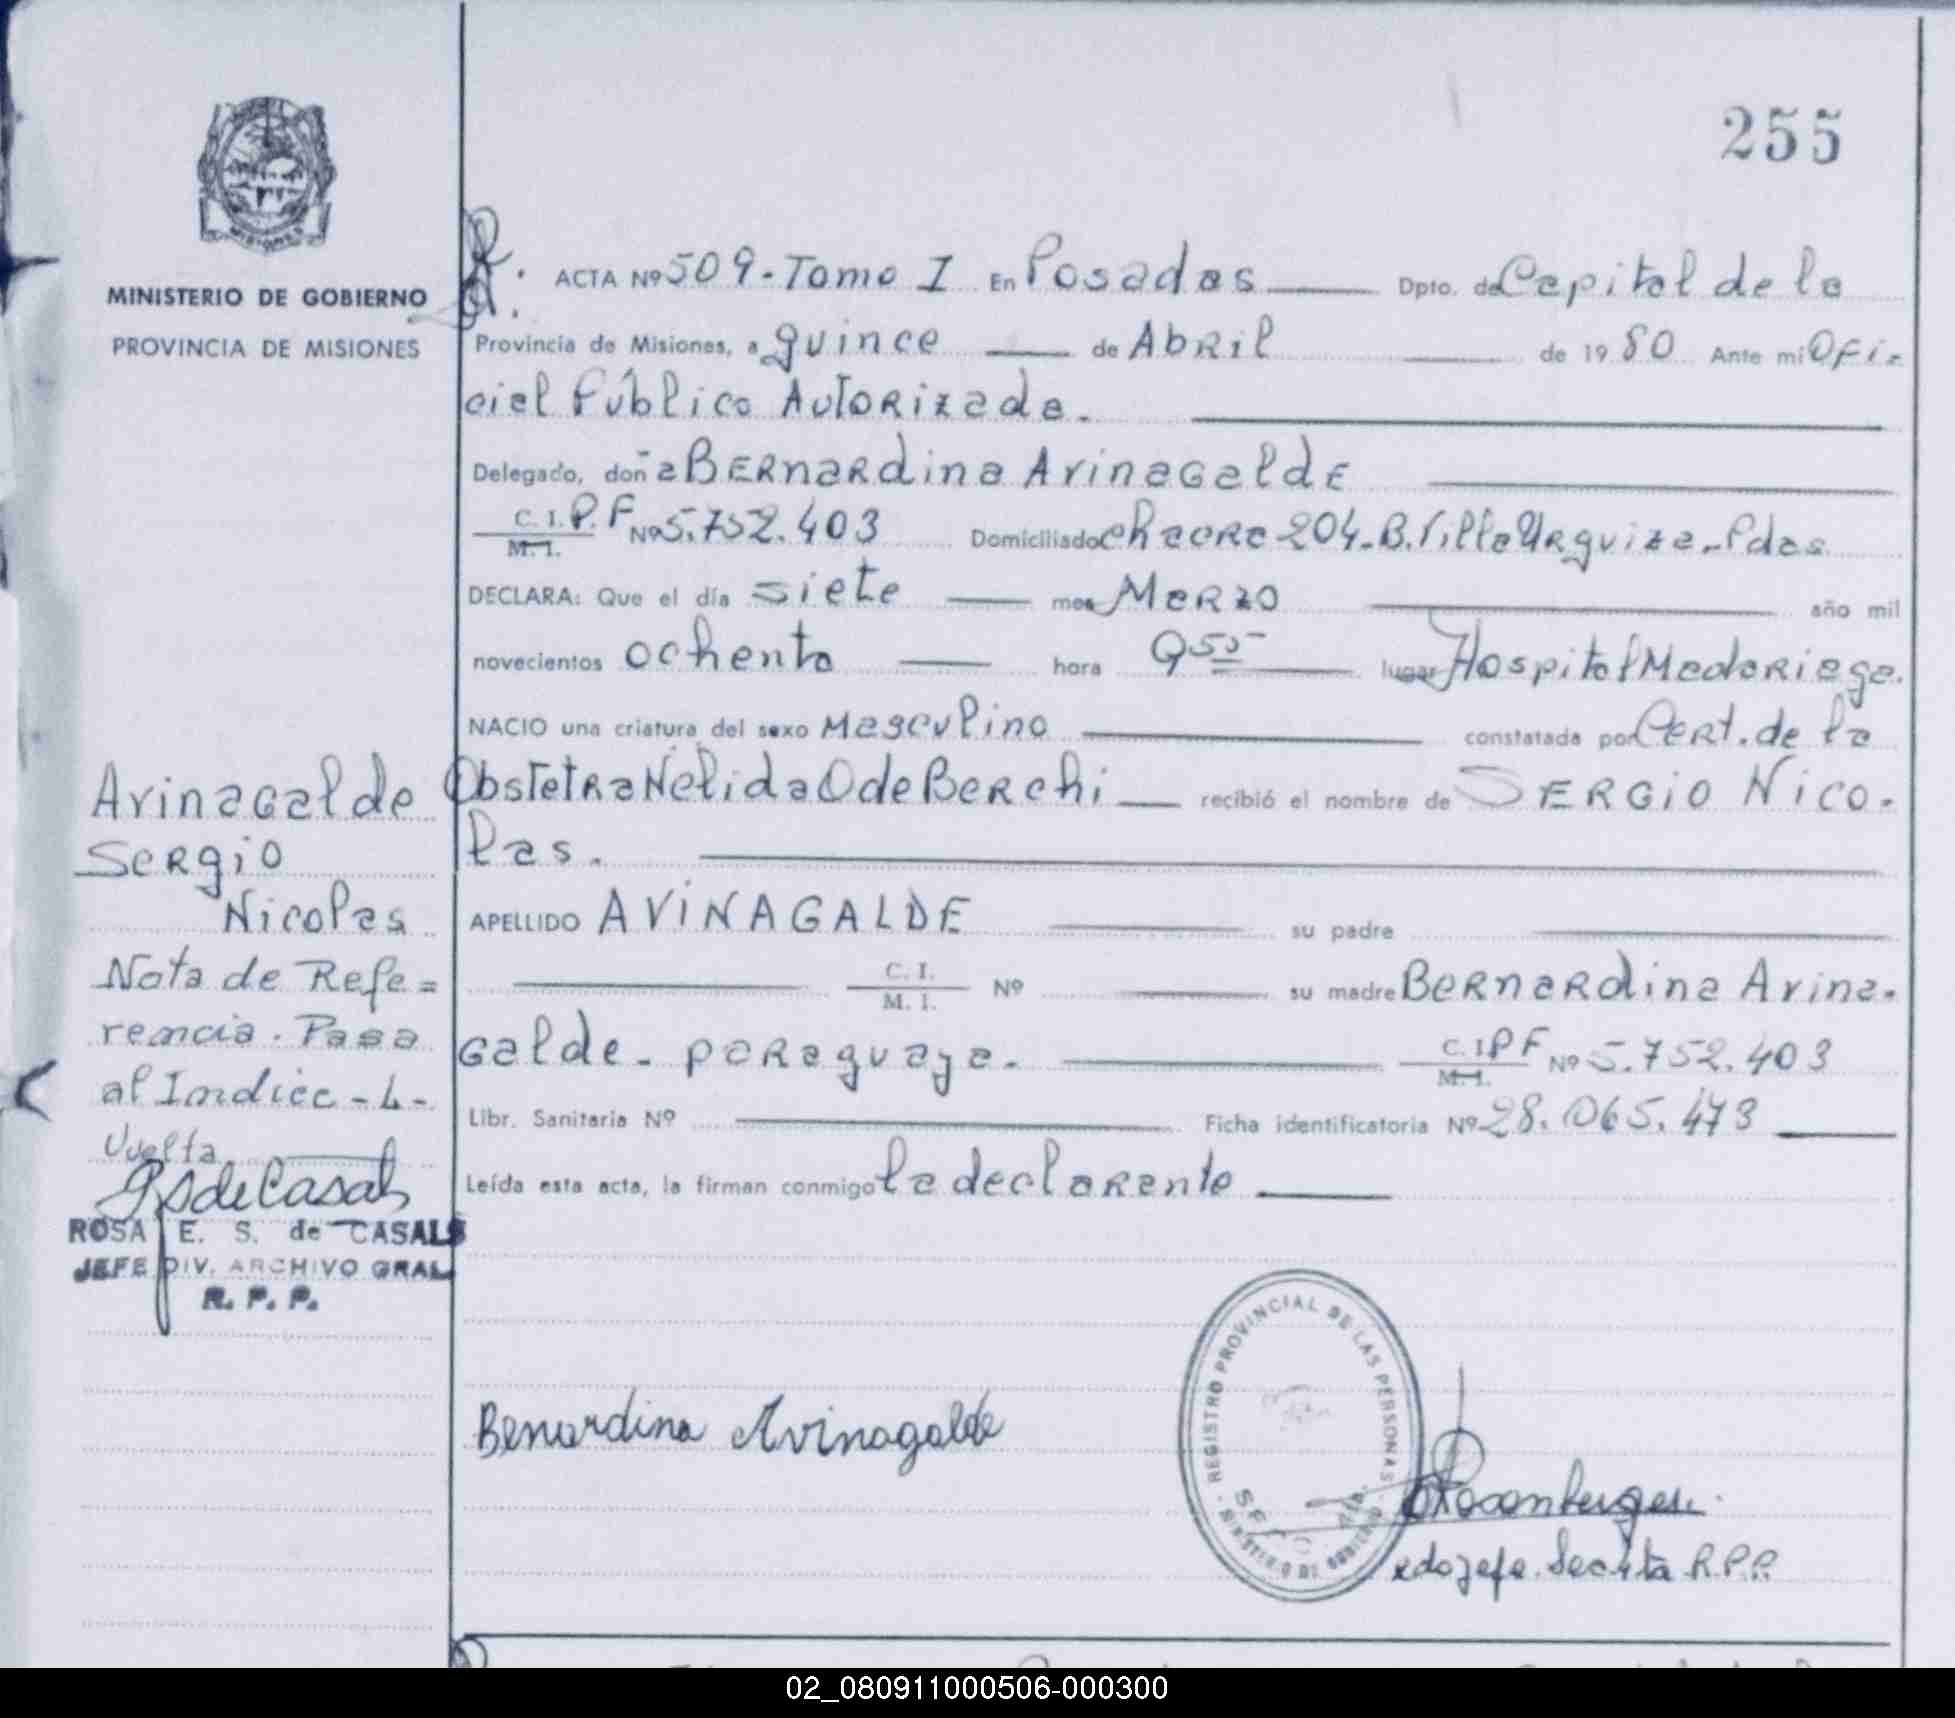 255
ACTA Nº 509 - Tomo I En Posadas Dpto. de Capital de la
MINISTERIO DE GOBIERNO
PROVINCIA DE MISIONES
Provincia de Misiones, a quince de Abril de 1980 Ante mi Ofi-
cial Público Autorizada.
Delegado, doña Bernardina Avinagalde
C. I. P. F
M. I. Nº 5.752.403 Domiciliado chacra 204. B. Villa Urquiza - Pdas
DECLARA: Que el día siete mes Marzo año mil
novecientos ochenta hora 9 55 lugar Hospital Madariaga.
NACIO una criatura del sexo Masculino constatada por Cert. de la
Obstetra Nelida O de Berchi recibió el nombre de SERGIO Nico-
las.
Avinagalde
Sergio
Nicolas
Nota de Refe=
rencia. Pasa
al Indice - 4 -
Vuelta
ROSA E. S. de CASALS
JEFE DIV. ARCHIVO GRAL
R. P. P.
APELLIDO AVINAGALDE su padre
C. I.
M. I. Nº su madre Bernardina Avina-
galde - paraguaya. C. I. P F
M. I. Nº 5.752.403
Libr. Sanitaria Nº Ficha identificatoria Nº 28.065.473
Leída esta acta, la firman conmigo la declarante
Bernardina Avinagalde
REGISTRO PROVINCIAL DE LAS PERSONAS
MINISTERIO DE GOBIERNO
R.P.P.
02_080911000506-000300